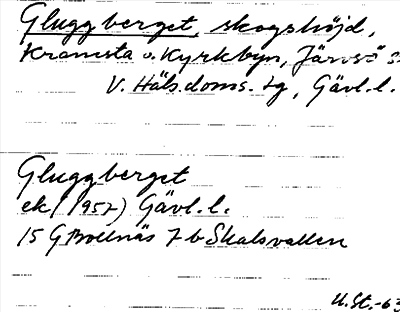 Gluggberget, skogshöjd,
Kramsta o. Kyrkbyn, Järvsö s
V. Häls. doms. tg, Gävl. l.
Gluggberget
ek (1957) Gävl. l.
15 G Bollnäs 7 b Skalsvallen
U.St.-63